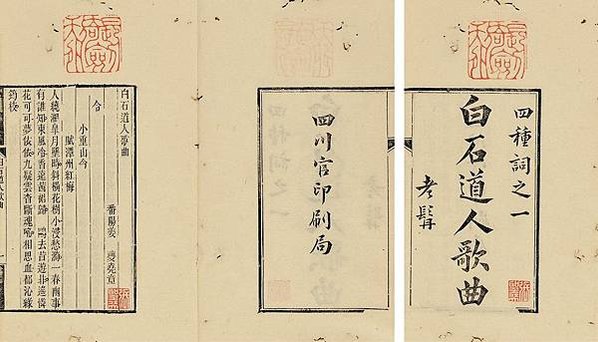 四種詞之一
白石道人歌曲
老髯
四川官印刷局
白石道人歌曲
番陽姜 夔堯章
令
小重山令
賦潭州紅梅
人繞湘皋月墜時斜橫花樹小浸愁漪一春幽事
有誰知東風冷香遠茜裙歸 鷗去昔遊非遙憐
花可可夢依依九疑雲杳斷魂啼相思血都沁綠
筠枝
白石道人歌曲